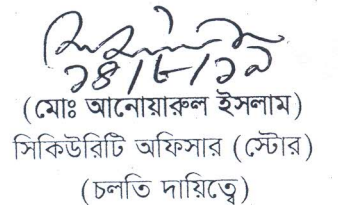 ১৪/৮/১৯
(মোঃ আনোয়ারুল ইসলাম)
সিকিউরিটি অফিসার (স্টোর)
(চলতি দায়িত্বে)